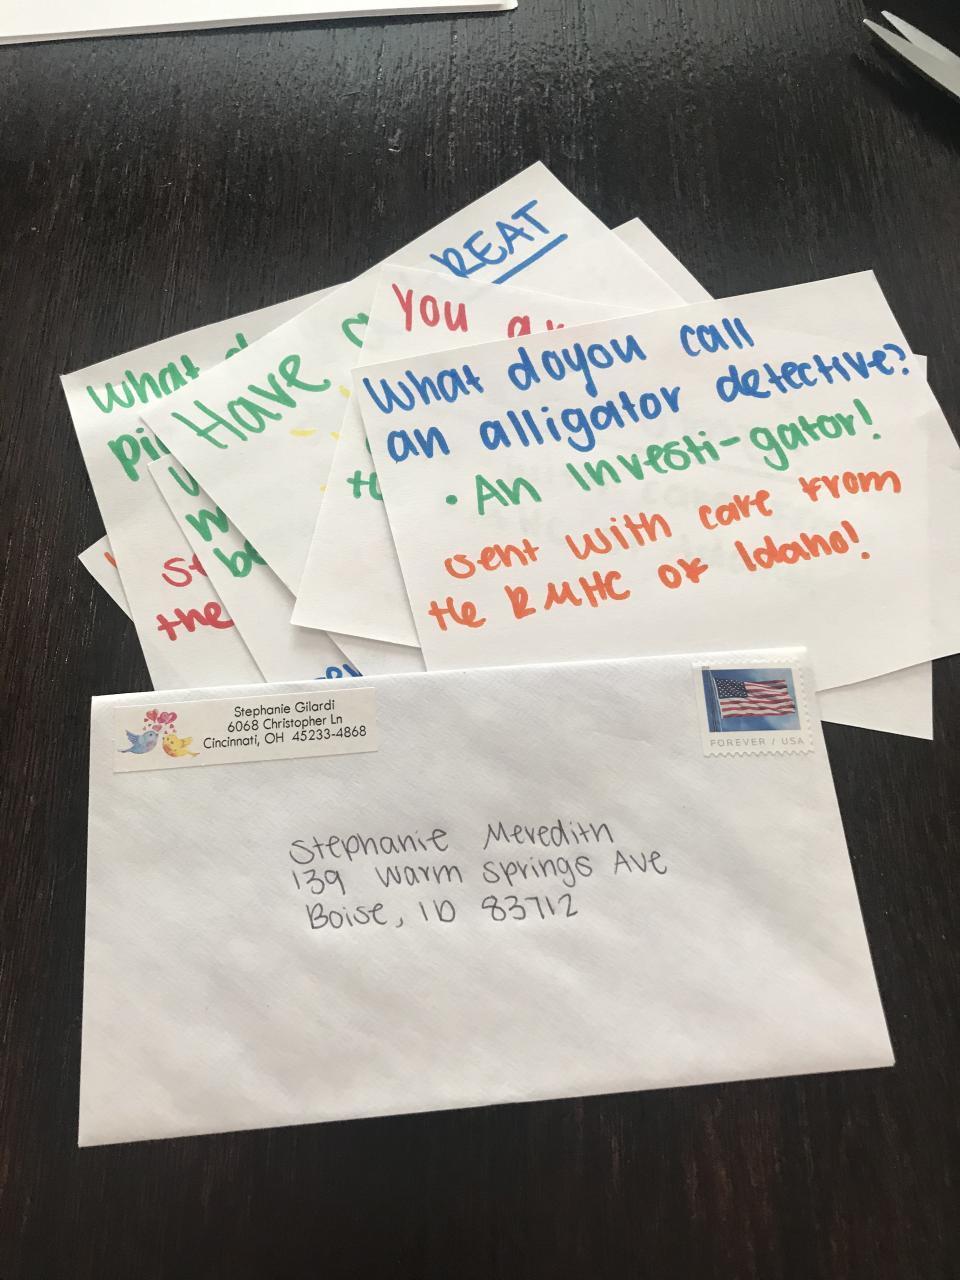 REAT
You
What
Have a
What doyou call
an alligator detective?
• An Investi-gator!
sent with care from
the RMHC of Idaho!
the
Stephanie Gilardi
6068 Christopher Ln
Cincinnati, OH 45233-4868
FOREVER / USA
Stephanie Meredith
139 Warm Springs Ave
Boise, ID 83712